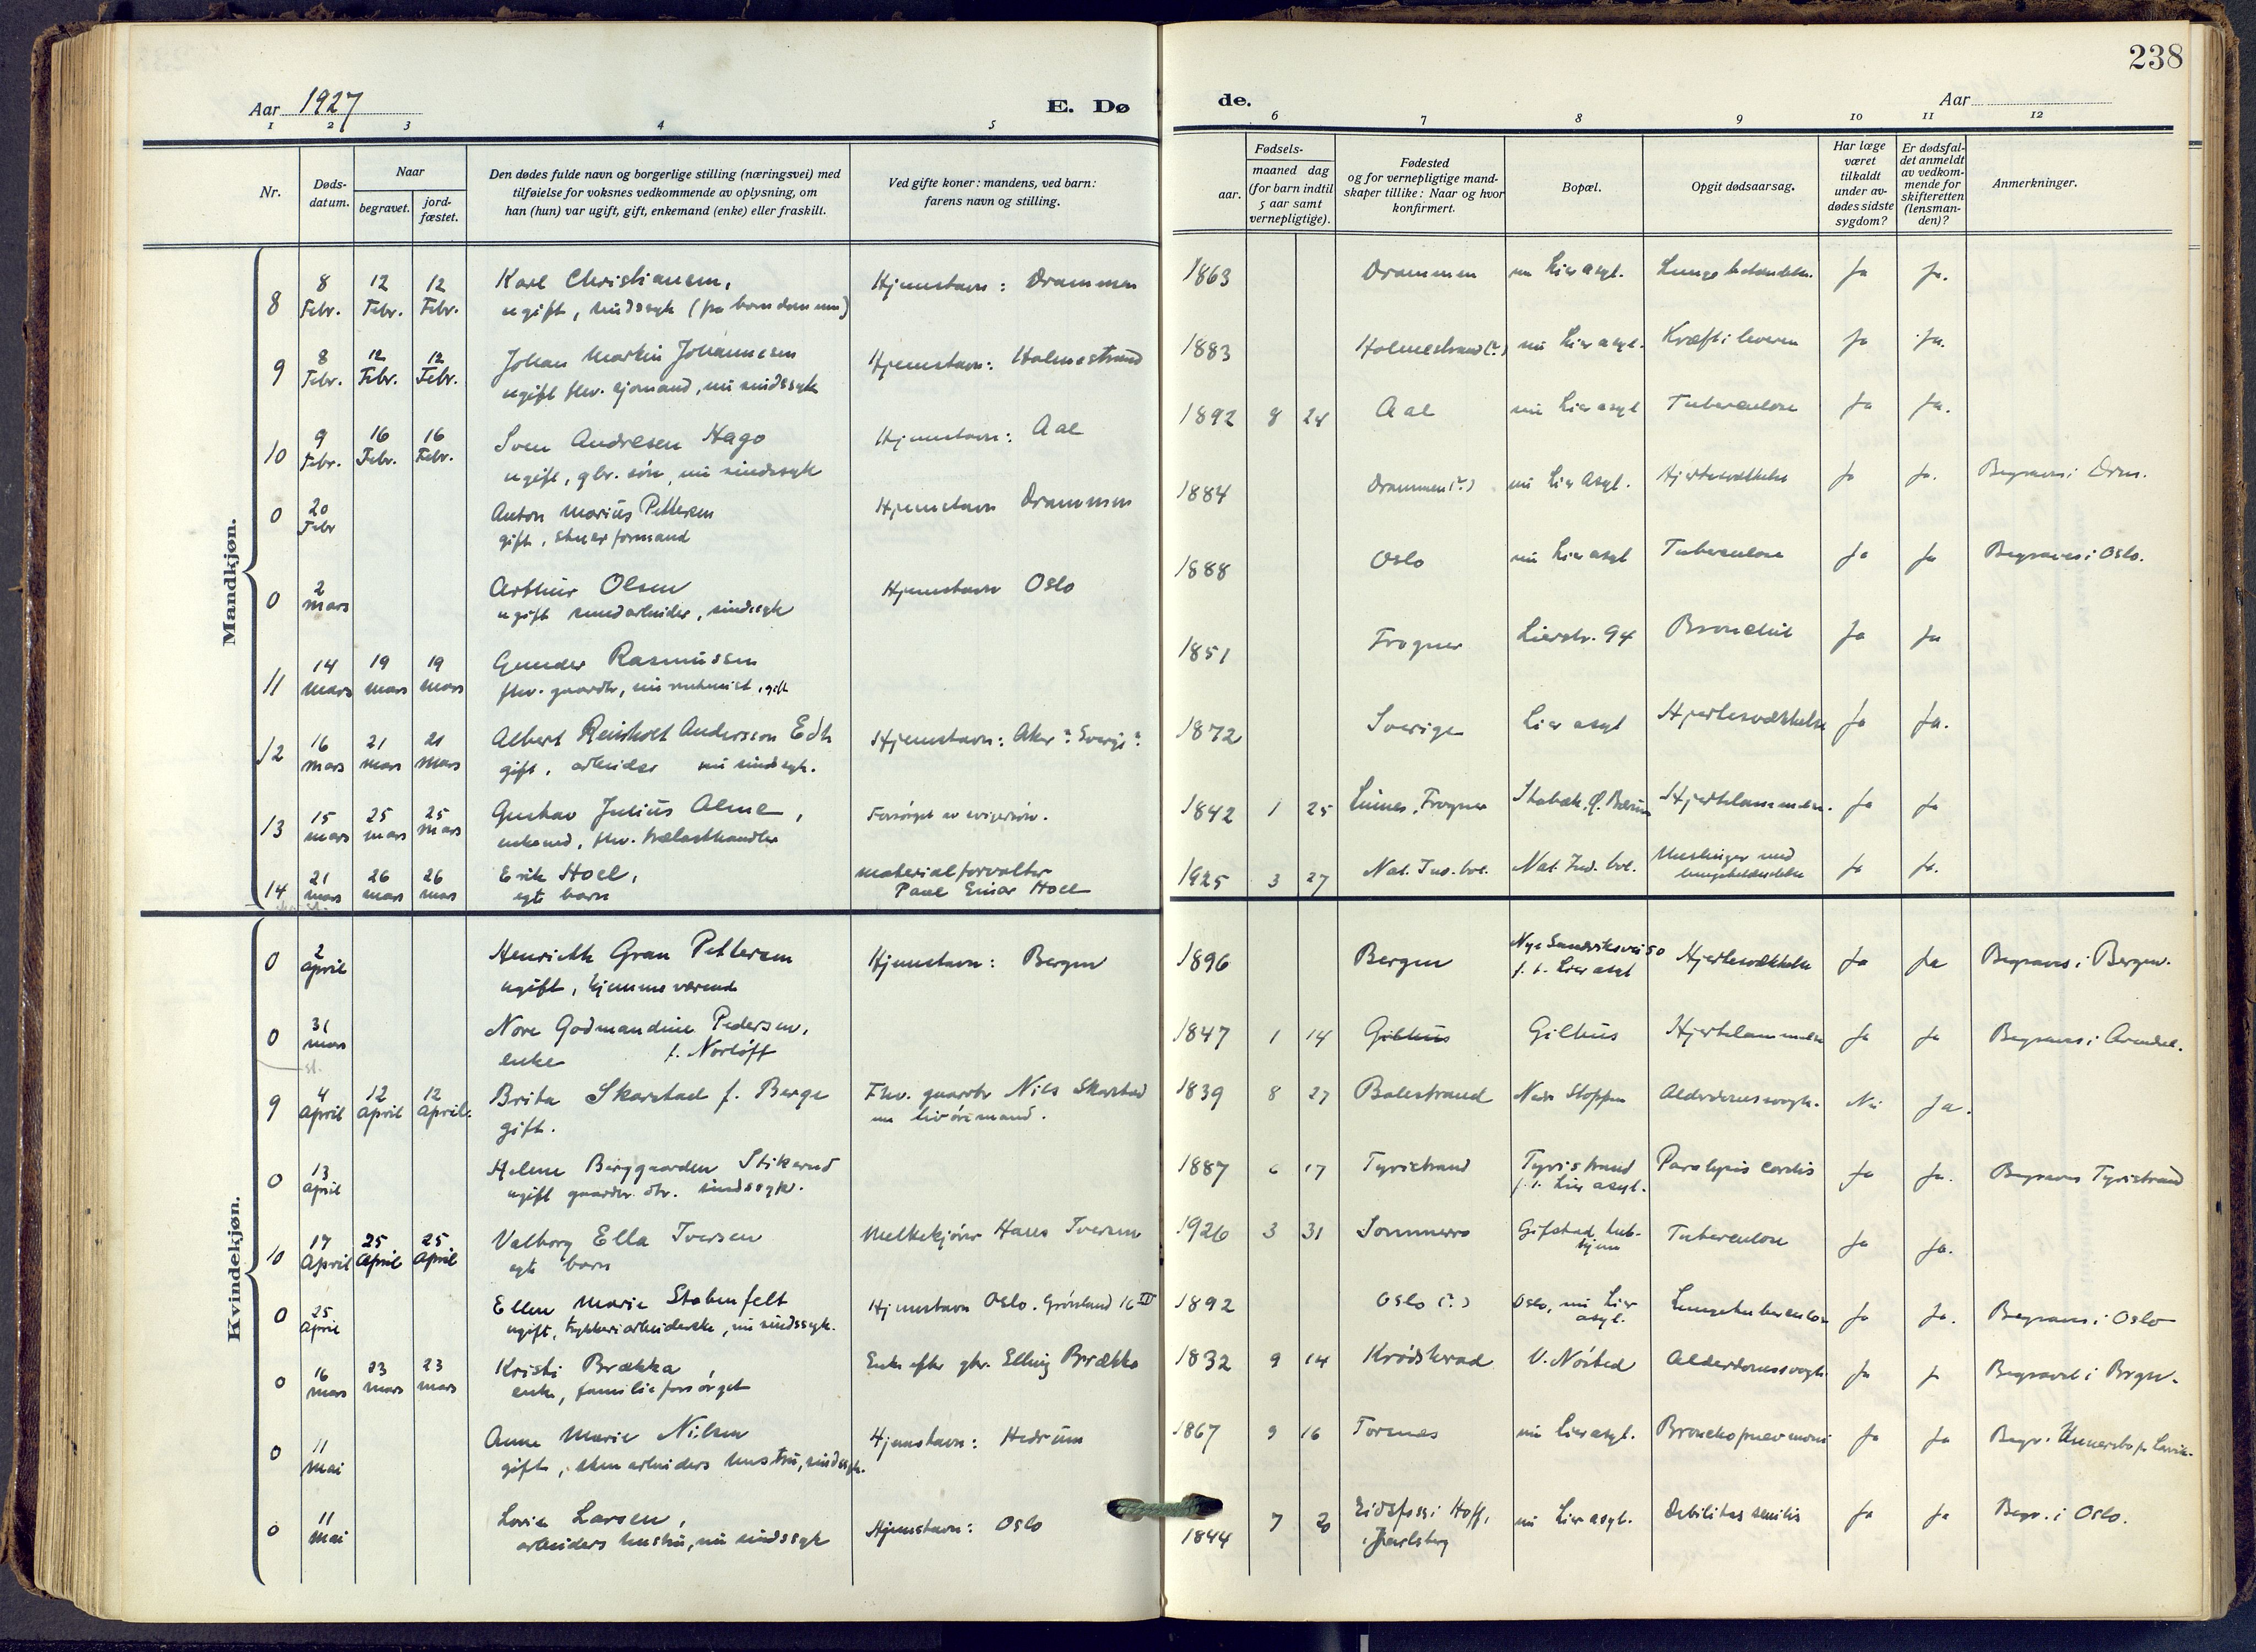 238
Aar 1927
E. Dø
de.
Aar
1 2 3 4 5
6 7 8 9 10 11 12
Nr.
Døds-
datum.
Naar
begravet.
jord-
fæstet.
Den dødes fulde navn og borgerlige stilling (næringsvei) med
tilføielse for voksnes vedkommende av oplysning, om
han (hun) var ugift, gift, enkemand (enke) eller fraskilt.
Ved gifte koner: mandens, ved barn:
farens navn og stilling.
Fødsels-
aar.
maaned dag
(for barn indtil
5 aar samt
vernepligtige).
Fødested
og for vernepligtige mand-
skaper tillike: Naar og hvor
konfirmert.
Bopæl.
Opgit dødsaarsag.
Har læge
været
tilkaldt
under av-
dødes sidste
sygdom?
Er dødsfal-
det anmeldt
av vedkom-
mende for
skifteretten
(lensman-
den)?
Anmerkninger.
Mandkjøn.
8 8 Febr. 12 Febr. 12 Febr. Karl Christiansen, Hjemstavn: Drammen 1863 Drammen nu Lier asyl. Ja Ja.
ugift, sindssyk (fra barndommen)
9 8 Febr. 12 Febr. 12 Febr. Johan Martin Johannesen Hjemstavn: Holmestrand 1883 Holmestrand(?) nu Lier asyl. Kræft i leveren Ja Ja.
ugift fhv. sjømand, nu sindssyk
10 9 Febr. 16 Febr. 16 Febr. Sven Andresen Hago Hjemstavn: Aal 1892 8 24 Aal nu Lier asyl Tuberculose Ja Ja.
ugift, gbr. søn, nu sindssyk
0 20 Febr Anton Marius Pettersen Hjemstavn Drammen 1884 Drammen(?) nu Lier Asyl. Hjertesvækkelse Ja Ja. Begraves i Drm.
gift, skuerformand
0 2 mars Arthur Olsen Hjemstavn Oslo 1888 Oslo nu Lier asyl Tuberculose Ja Ja Begraves i Oslo.
ugift arbeider, sindssyk
11 14 mars 19 mars 19 mars Gunder Rasmussen 1851 Frogner Lierstr. 94 Bronchit Ja Ja
fhv. gaardbr, nu gift
12 16 mars 21 mars 21 mars Albert Reinholt Andersson Edh Hjemstavn: Aker? Sverige? 1872 Sverige Lier asyl Hjertesvækkelse Ja Ja.
gift, arbeider nu sindssyk.
13 15 mars 25 mars 25 mars Gustav Julius Alme, Forsørget av svigersøn. 1842 1 25 Frogner Stabæk, Bærum Hjertelammelse. Ja Ja
enkemd, fhv. trælasthandler
14 21 mars 26 mars 26 mars Erik Hoel, materialforvalter 1925 3 27 Nat. Ind. bol. Nat. Ind. bol. Meslinger med Ja Ja.
egte barn Paul Einar Hoel lungebetændelse
Kvindekjøn.
0 2 april Henriette Gran Pettersen Hjemstavn: Bergen 1896 Bergen Nye Sandviksvei 50 Hjertesvækkelse Ja Ja Begraves i Bergen.
ugift, hjemmeværende f. t. Lier asyl
0 31 mars Nora Godmandine Pedersen, 1847 1 14 Gilhus Gilhus Hjertelammelse Ja Ja Begraves i Arendal.
enke f. Norløff
9 4 April 12 April 12 April. Brita Skarstad f. Berge Fhv. gaardbr Nils Skarstad 1839 8 27 Balestrand Nedr Stoppen Alderdomssvagh. Nei Ja.
gift. nu livøremand.
0 13 april Helene Berggaarden Stikerud 1887 6 17 Tyristrand Tyristrand Paralysis cordis Ja Ja. Begraves Tyristrand
ugift gaardbr. dtr. sindssyk. f. t. Lier asyl.
10 17 April 25 April 25 April Valborg Ella Iversen Melkekjører Hans Iversen 1926 3 31 Sommerro Gifstad tub- Tuberculose Ja Ja.
egte barn hjem
0 25 April Ellen Marie Stabenfelt Hjemstavn Oslo. Grønland 16 III 1892 Oslo (?) Oslo, nu Lier Lungetuberculose Ja Ja. Begraves i Oslo
ugift, trykkeriarbeiderske, nu sindssyk. asyl.
0 16 mars 23 mars 23 mars Kristi Brækka, Enke efter gbr. Elling Brækka 1832 9 14 Krødsherad V. Nøsted Alderdomssvagh Ja Ja Begravet i
enke, familieforsørget
0 11 mai Anne Marie Nilsen Hjemstavn: Hedrum 1867 9 16 Torsnes nu Lier asyl. Bronchopneumoni Ja Ja Begr.
gift, arbeiders hustru, sindssyk.
0 11 Mai Lovise Larsen, Hjemstavn: Oslo 1844 7 20 Eidsfoss i Hoff, nu Lier asyl. Debilitas senilis Ja Ja Begr. i Oslo.
arbeiders hustru, nu sindssyk i Jarlsberg